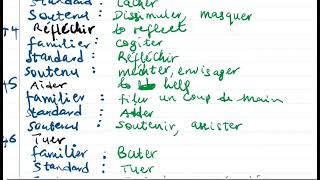 Standard : Cacher
Soutenu : Dissimuler, masquer
44 Réfléchir to reflect
familier : Cogiter
Standard : Réfléchir
Soutenu : méditer, envisager
45 Aider to help
familier : filer un coup de main
Standard : Aider
Soutenu : soutenir, assister
46 Tuer
familier : Buter
Standard : Tuer